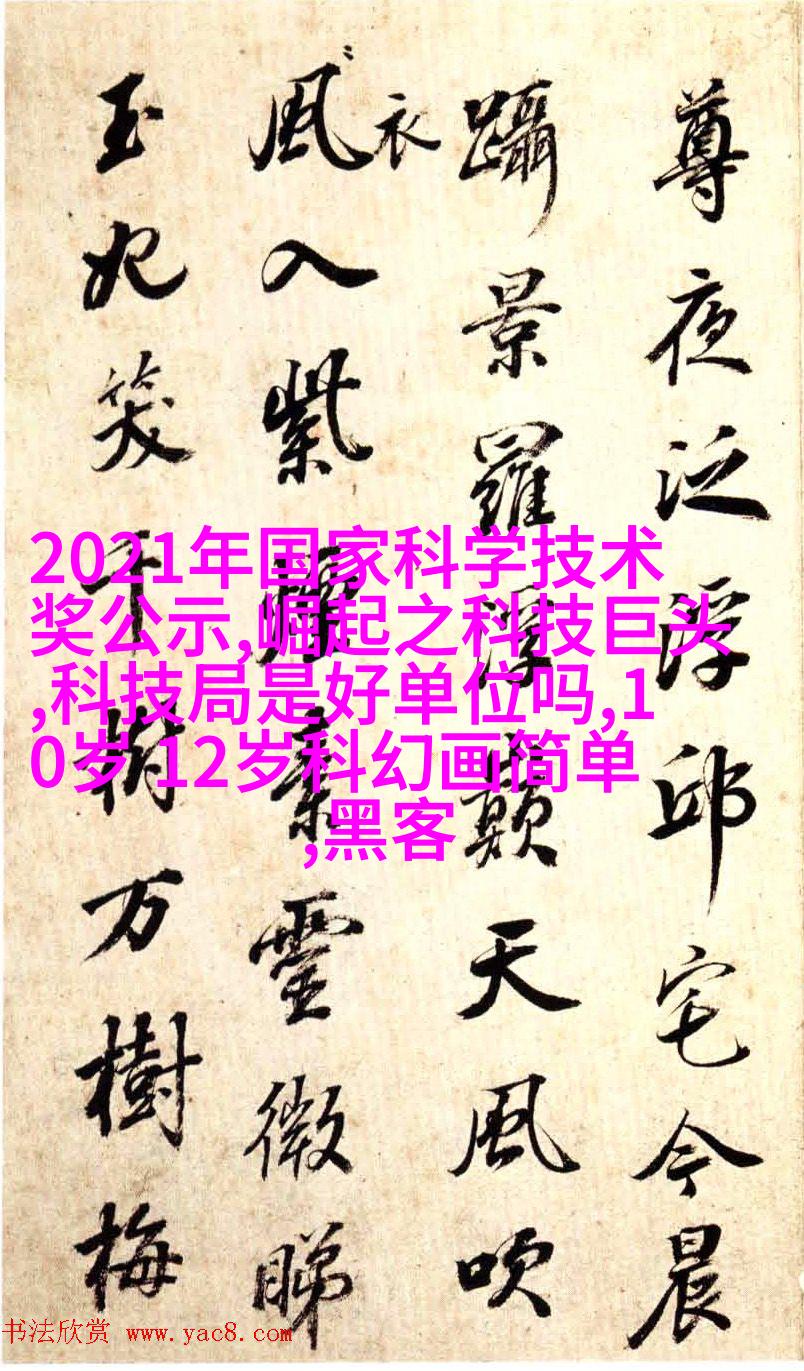 尊夜泛浮邱宅今晨
躡景羅浮巔天風吹
衣
風入紫靈微睇
玉妃笑千樹万樹梅
2021年国家科学技术
奖公示,崛起之科技巨头
,科技局是好单位吗,1
0岁 12岁科幻画简单
,黑客
书法欣赏 www.yac8.com